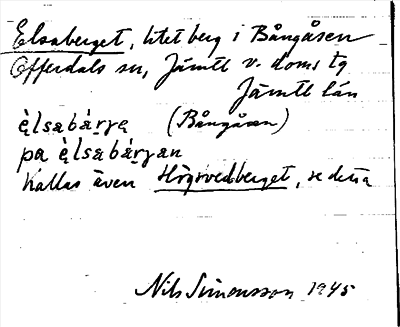 Elsaberget, litet berg i Bångåsen
Offerdals sn, Jämtl v. doms tg
Jämtl län
è̀lsabár̯ja (Bångåsen)
pa è̀lsabár̯jan
Kallas även Högsvedberget, se detta
Nils Simonsson 1945